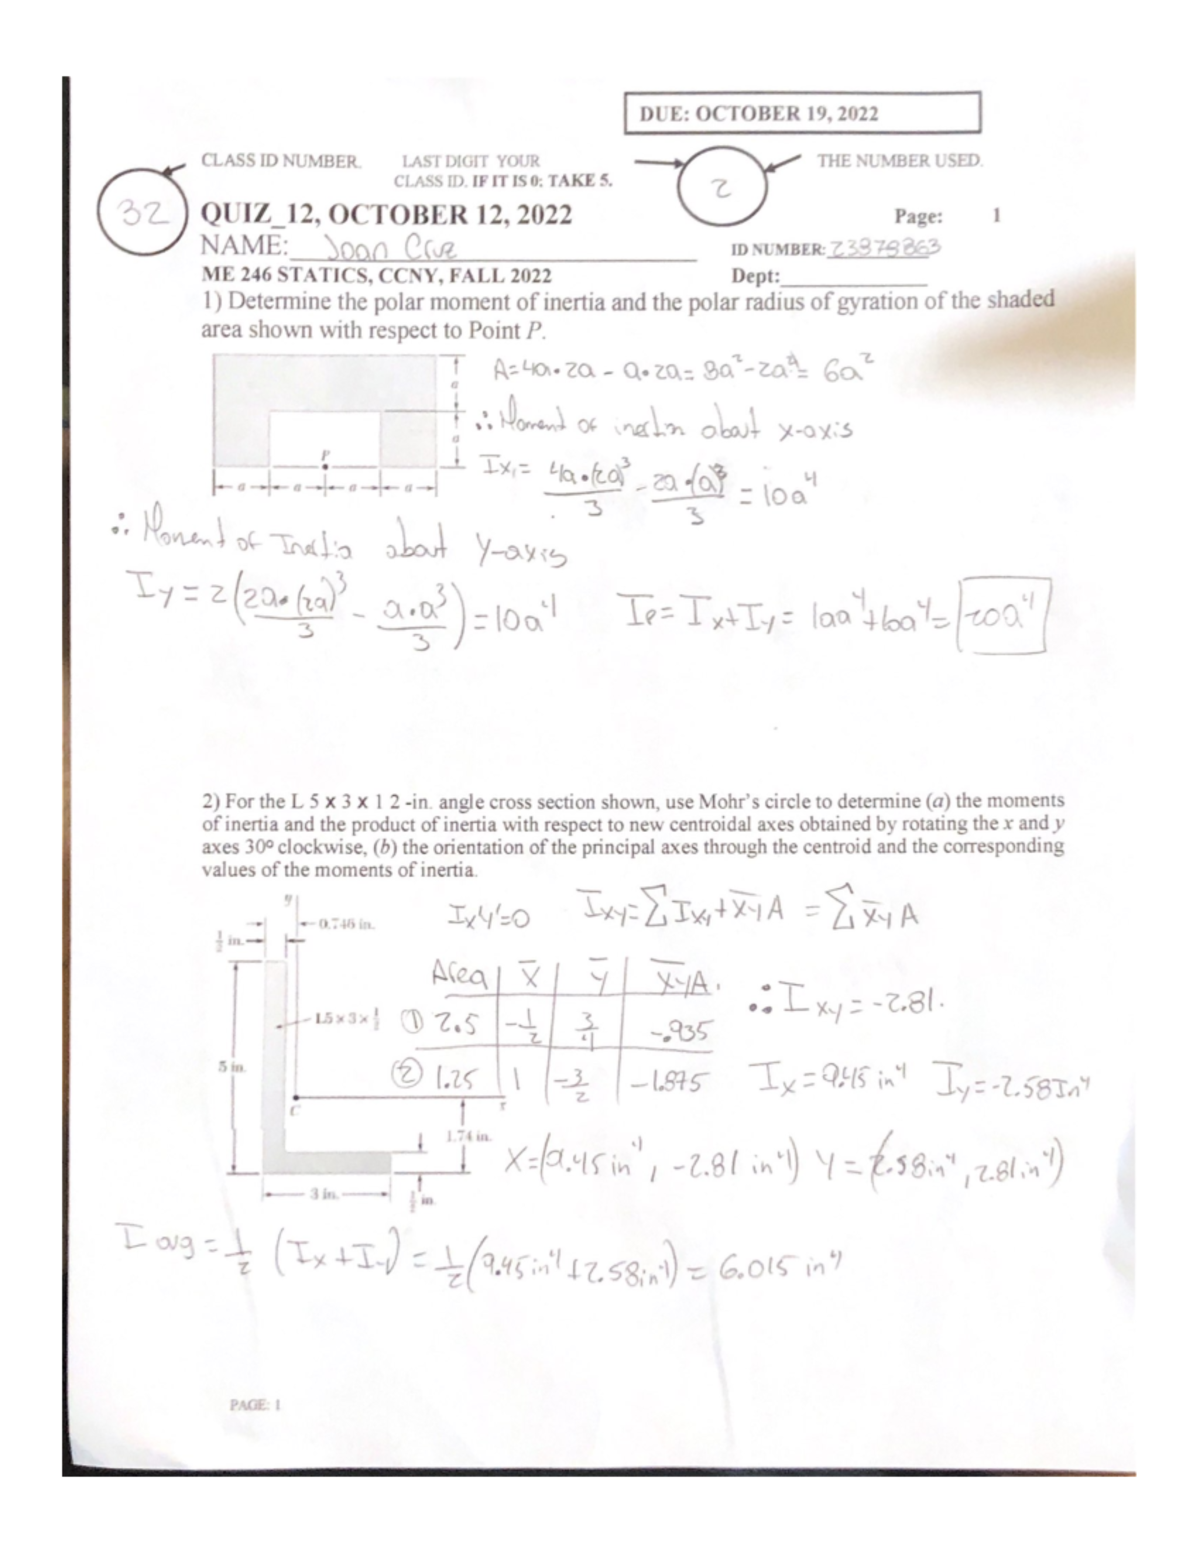 DUE: OCTOBER 19, 2022
CLASS ID NUMBER. LAST DIGIT YOUR THE NUMBER USED.
CLASS ID. IF IT IS 0: TAKE 5.
32
2
QUIZ_12, OCTOBER 12, 2022 Page: 1
NAME: Joan Cruz ID NUMBER:
ME 246 STATICS, CCNY, FALL 2022 Dept:
1) Determine the polar moment of inertia and the polar radius of gyration of the shaded
area shown with respect to Point P.
A=4a·2a - a·2a= 8a²-2a²= 6a²
a
∴ Moment of inertia about x-axis
a
P
Ix₁= 4a·(2a)³/3 - 2a·(a)³/3 = 10a⁴
a a a a
∴ Moment of Inertia about Y-axis
Iy = 2(2a·(2a)³/3 - a·a³/3) = 10a⁴ Ip= Ix+Iy= 10a⁴+10a⁴= 20a⁴
2) For the L 5 x 3 x 1 2 -in. angle cross section shown, use Mohr's circle to determine (a) the moments
of inertia and the product of inertia with respect to new centroidal axes obtained by rotating the x and y
axes 30º clockwise, (b) the orientation of the principal axes through the centroid and the corresponding
values of the moments of inertia.
y
Ix'y'=0 Ixy=∑Ixy+x̄yA = ∑x̄yA
0.746 in.
½ in.
Area x̄ ȳ x̄yA.
∴ Ixy = -2.81.
L5 x 3 x ½
① 2.5 -½ ¾ -.935
5 in.
② 1.25 1 -3/2 -1.875 Ix = 9.45 in⁴ Iy=-2.58In⁴
C x
1.74 in.
X=(9.45 in⁴, -2.81 in⁴) Y = (2.58in⁴, 2.81in⁴)
3 in. ½ in.
I avg = ½ (Ix +Iy) = ½(9.45in⁴+2.58in⁴) = 6.015 in⁴
PAGE: 1